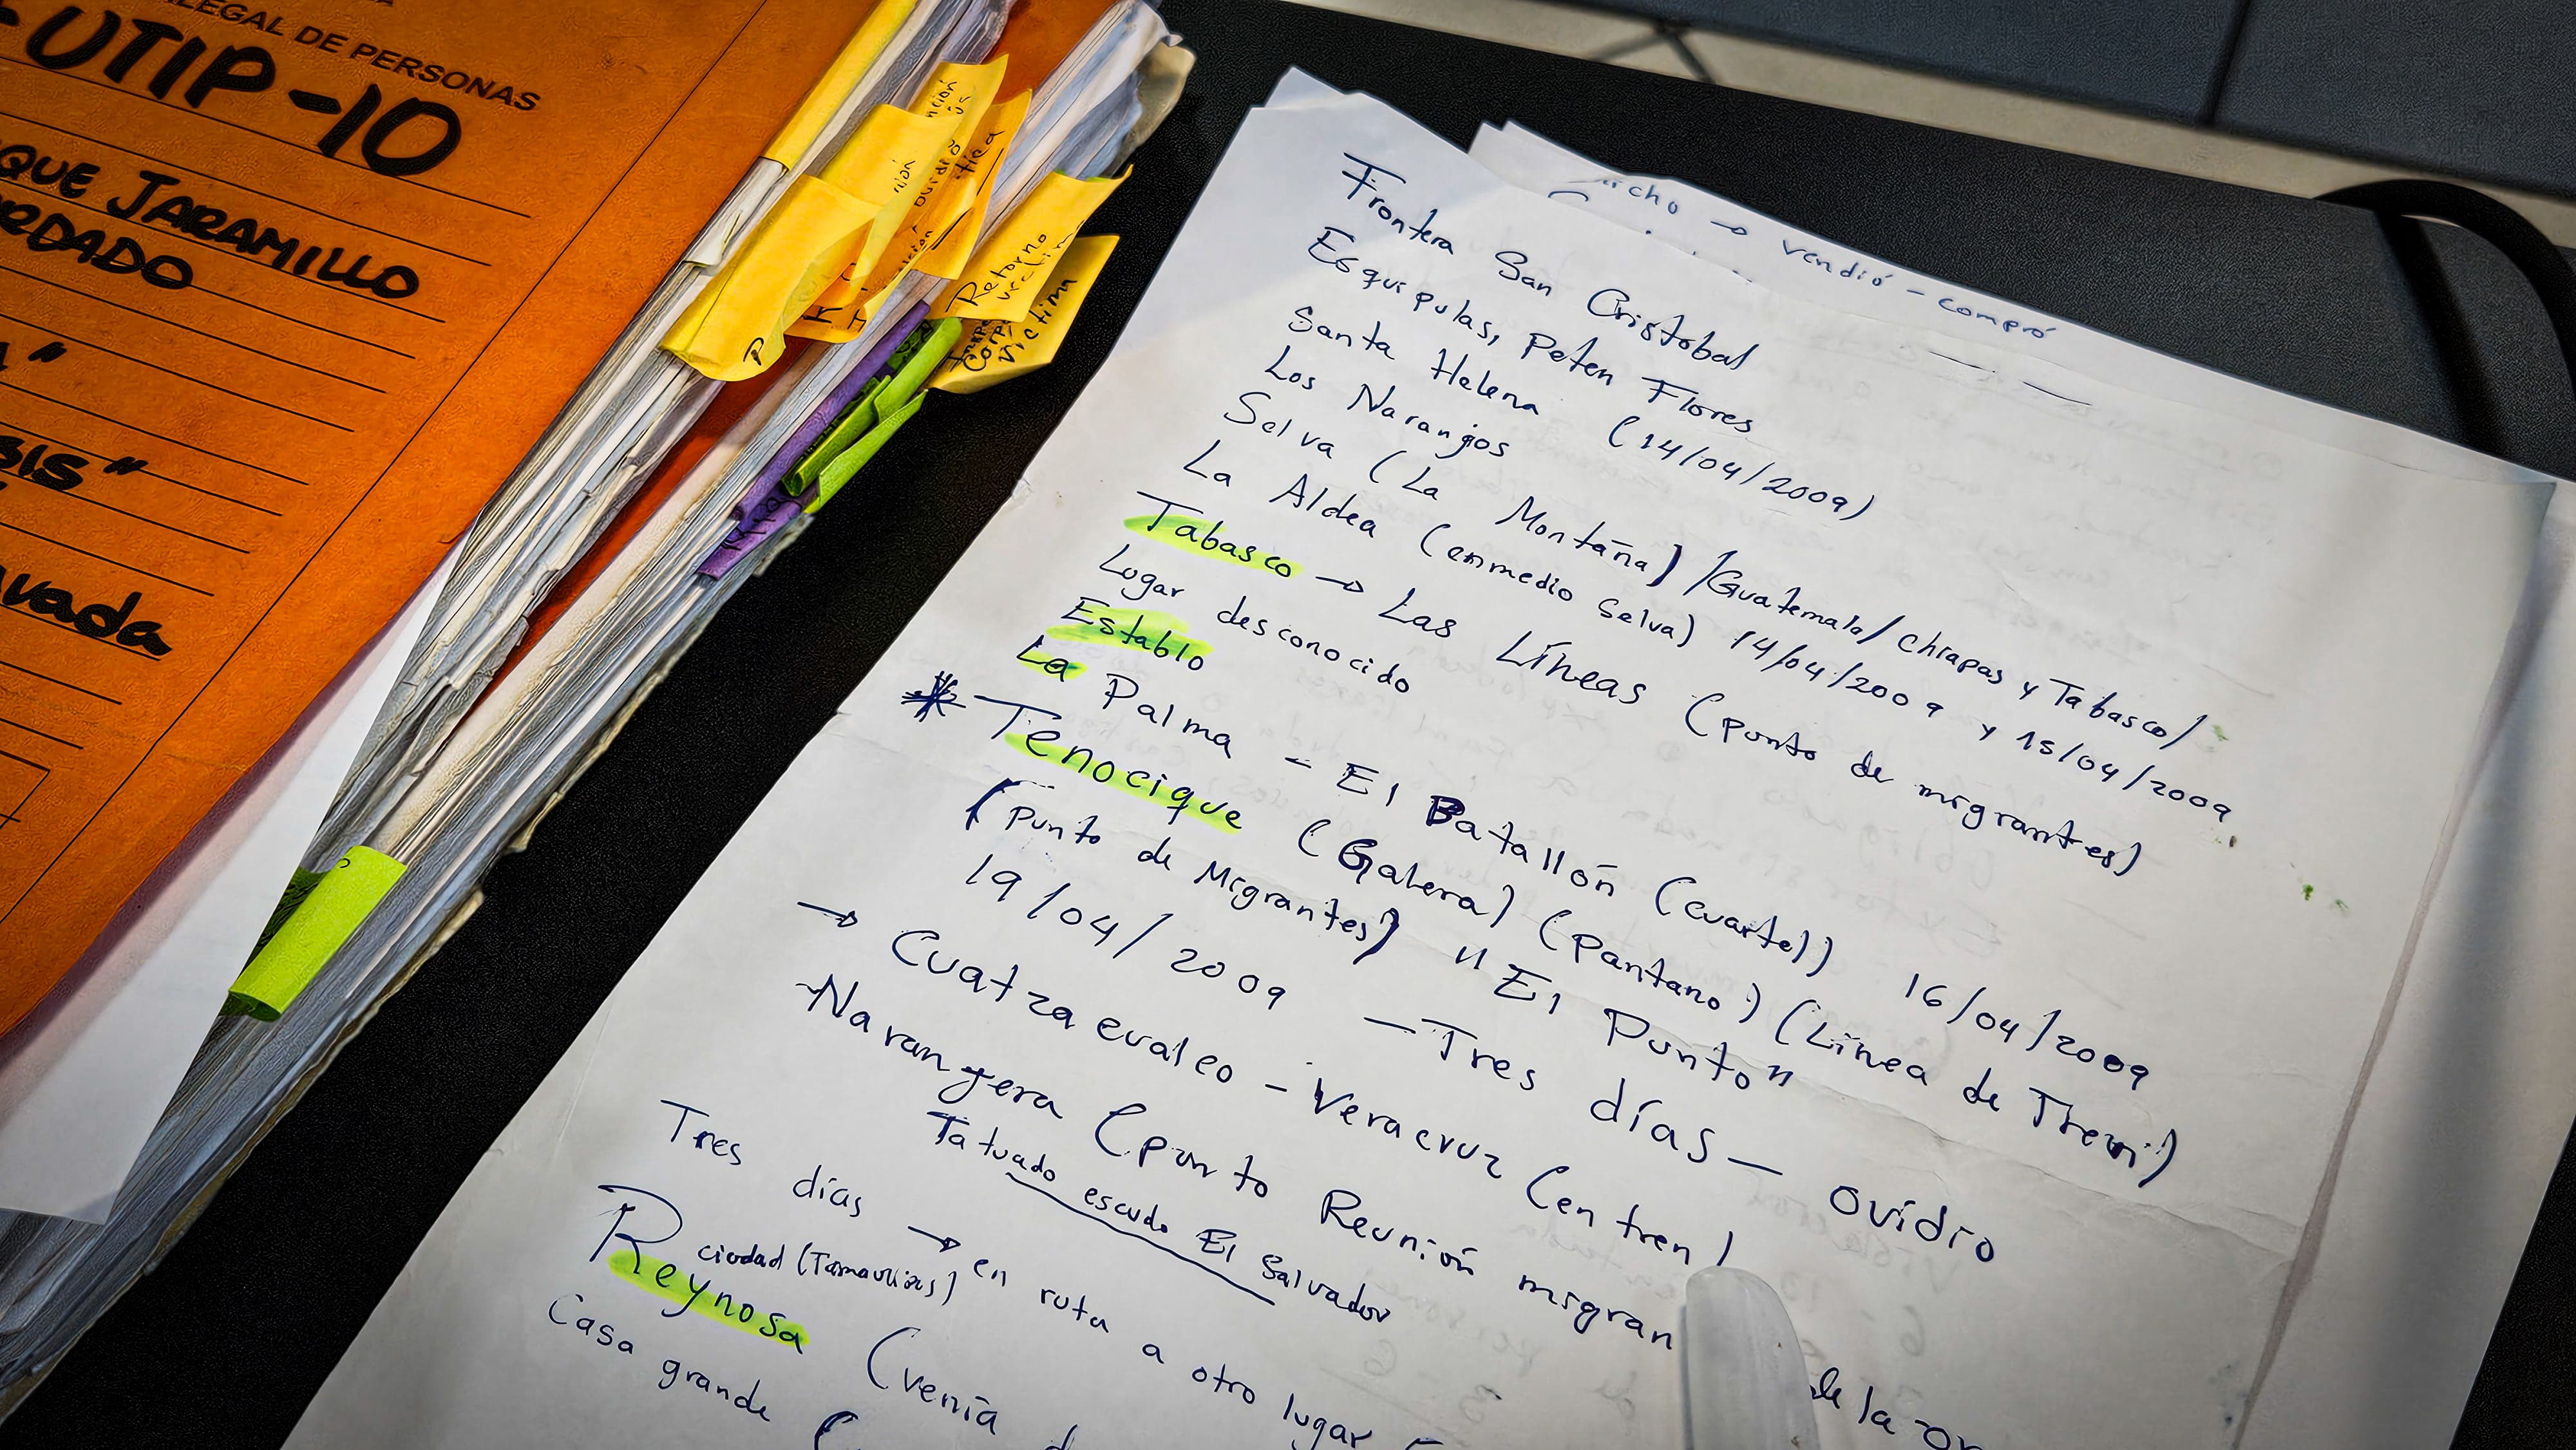 ILEGAL DE PERSONAS
-UTIP-10
QUE JARAMILLO
RDADO
A"
SIS"
vada
Retorno
víctima
→ vendió - compró
Frontera San Cristobal
Esquipulas, Peten Flores
Santa Helena (14/04/2009)
Los Naranjos
Selva (La Montaña) /Guatemala/Chiapas y Tabasco/
La Aldea (enmedio selva) 14/04/2009 y 15/04/2009
Tabasco → Las Líneas (punto de migrantes)
Lugar desconocido
Establo
La Palma - El Batallón (cuartel) 16/04/2009
* Tenocique (Galera) (Pantano) (Línea de Tren)
(Punto de Migrantes) "El Punto"
19/04/2009 — Tres días — Ovidio
→ Cuatzaevaleo - Veracruz (en tren)
-Naranjera (punto Reunión migran de la
Tatuado escudo El Salvador
Tres días → en ruta a otro lugar
ciudad (Tamaulipas)
Reynosa (venía
Casa grande (